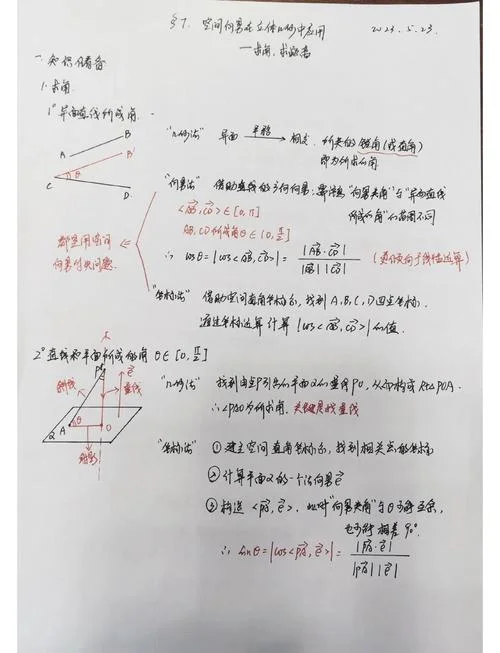 §7. 空间向量在立体几何中应用 2023.5.23.
—求角、求距离
一.知识储备
1.求角.
1° 异面直线所成角.
A B B' C D θ
"几何法" 异面 平移→ 相交. 所夹的锐角(或直角)
即为所求的角
"向量法" 借助直线的方向向量: 要注意"向量夹角"与"异面直线
所成角"的范围不同
<AB,CD>∈[0,π]
AB,CD所成角θ∈(0,π/2]
都是用空间
向量夹角问题.
∴ cosθ=|cos<AB,CD>|= |AB·CD| / |AB||CD|
"坐标法" 借助空间直角坐标系, 找到A,B,C,D四点坐标.
通过坐标运算计算|cos<AB,CD>|的值.
2° 直线和平面所成的角 θ∈[0,π/2]
P e 斜线 垂线 A θ O α 射影
"几何法" 找到由点P引出的平面α的垂线PO, 从而构成Rt△POA.
∴∠PAO为所求角. 关键是找垂线
"坐标法" ① 建立空间直角坐标系, 找到相关点的坐标
② 计算平面α的一个法向量e
③ 构造<PA,e>. 此时"向量夹角"与θ可能互余,
也可能相差90°.
∴ sinθ=|cos<PA,e>|= |PA·e| / |PA||e|